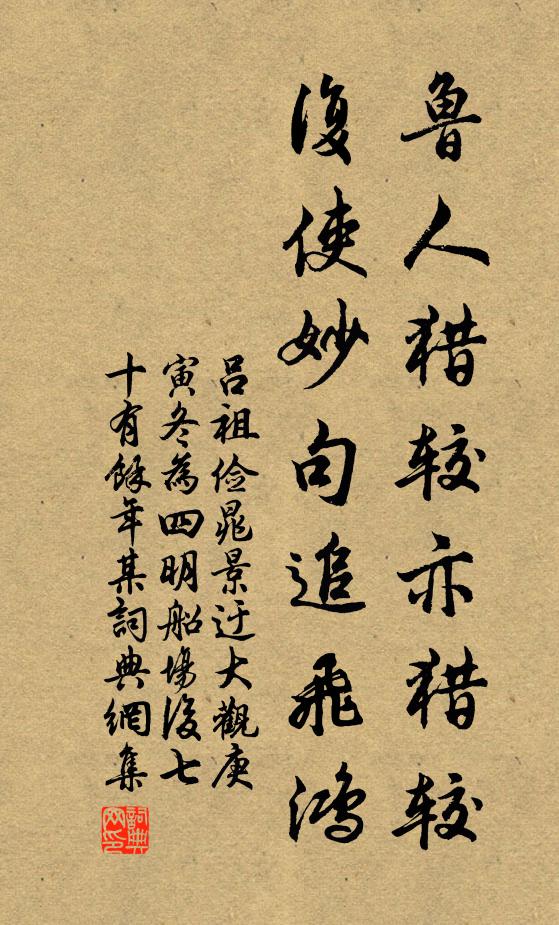 鲁人猎较亦猎较
復使妙句追飛鴻
吕祖俭晁景迂大觀庚
寅冬為四明船場後七
十有餘年某詞典網集
詞典网印